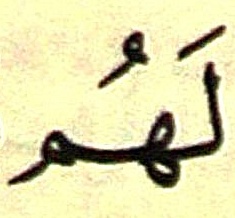 لَهُم